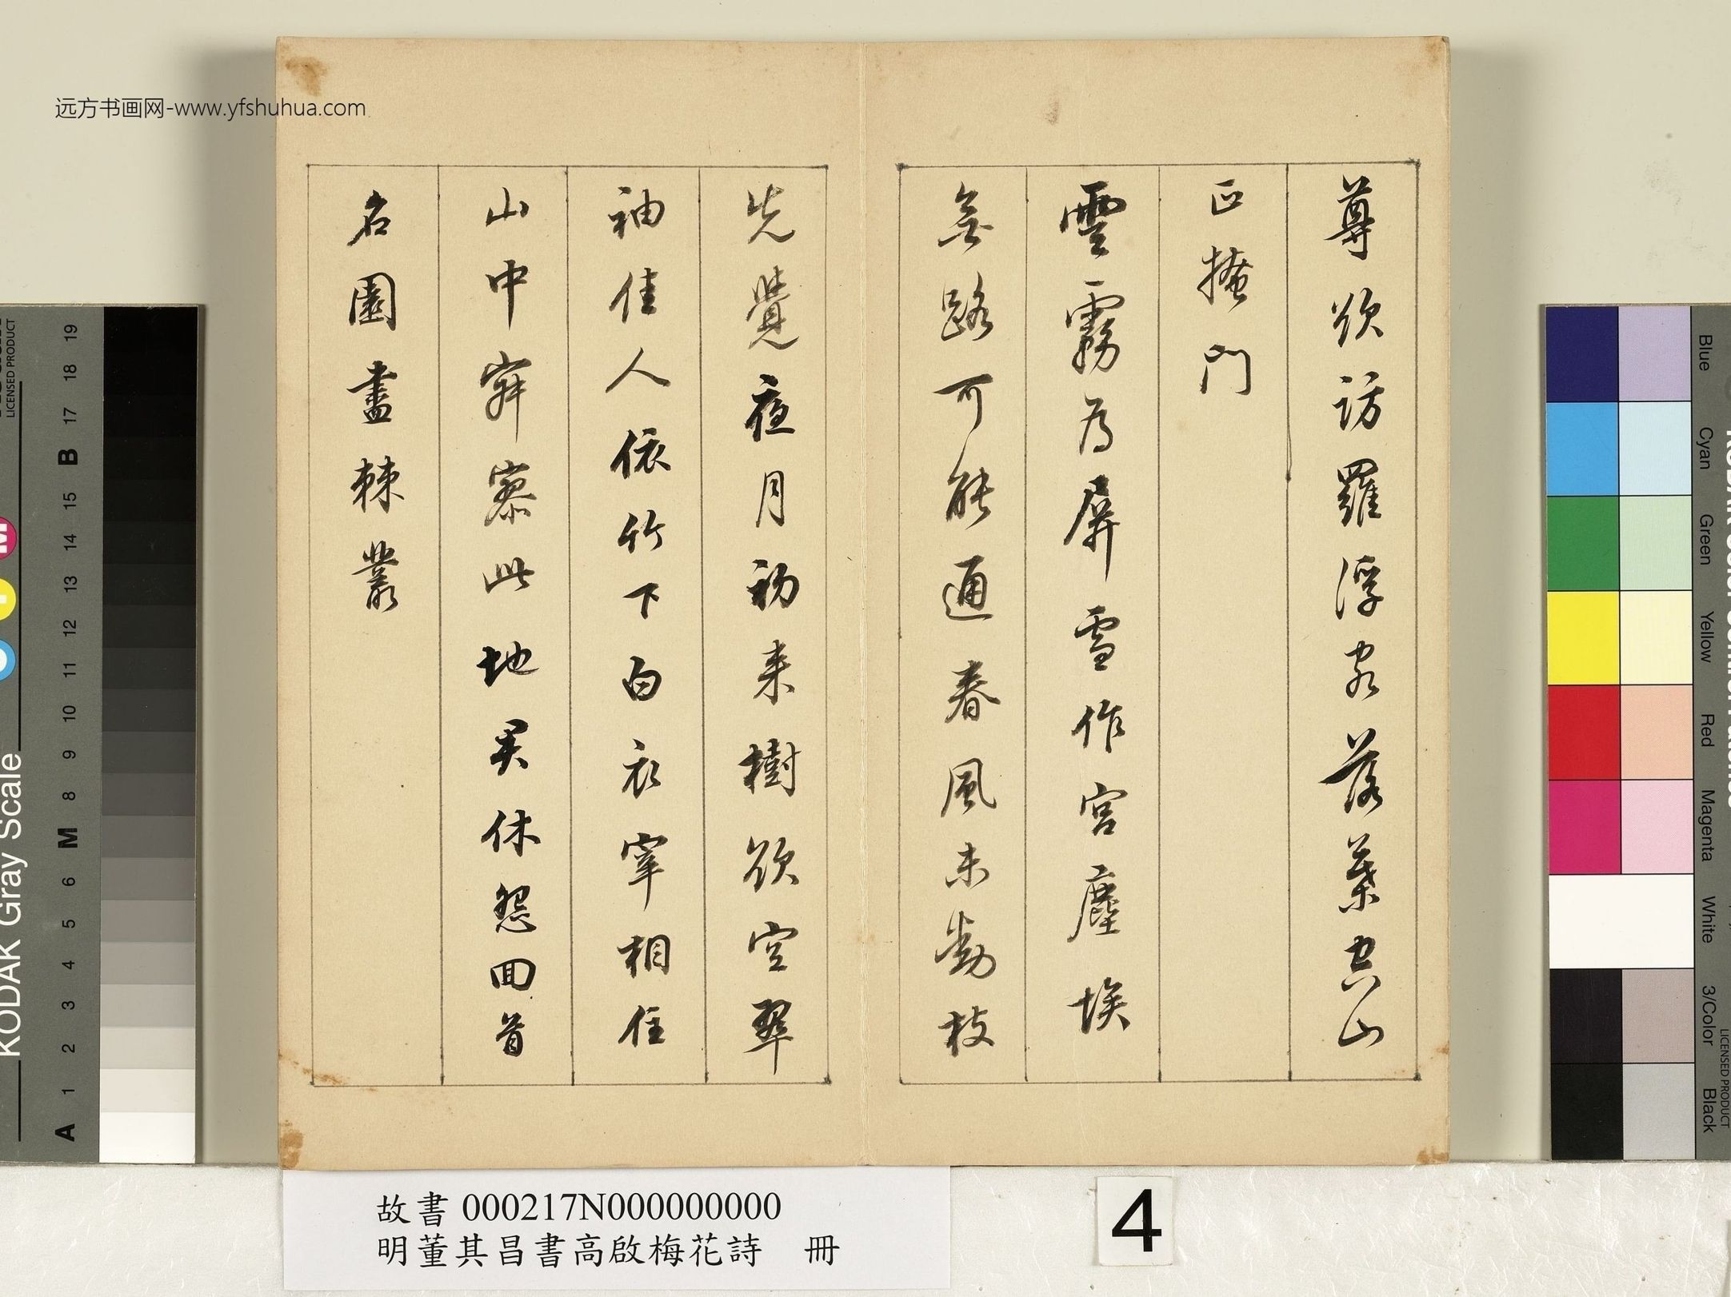 远方书画网-www.yfshuhua.com
尊欲訪羅浮客落葉空山
正掩門
雲霧為屏雪作宮塵埃
無路可能通春風未動枝
先覺夜月初来樹欲空翠
袖佳人依竹下白衣宰相住
山中寂寞此地君休怨回首
名園盡棘叢
故書 000217N000000000
明董其昌書高啟梅花詩 冊
4
KODAK Gray Scale
LICENSED PRODUCT
A 1 2 3 4 5 6 M 8 9 10 11 12 13 14 15 B 17 18 19
Blue
Cyan
Green
Yellow
Red
Magenta
White
3/Color
Black
LICENSED PRODUCT